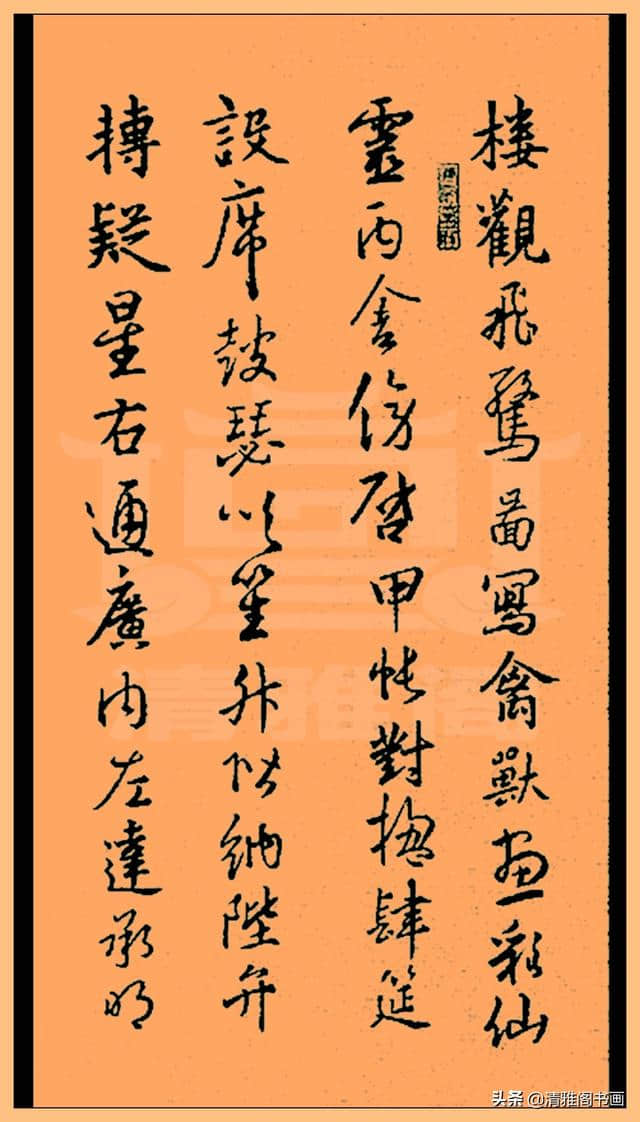 樓觀飛驚圖寫禽獸畫彩仙
靈丙舍傍啓甲帳對楹肆筵
設席鼓瑟吹笙升階納陛弁
轉疑星右通廣内左達承明
清雅阁
头条 @清雅阁书画